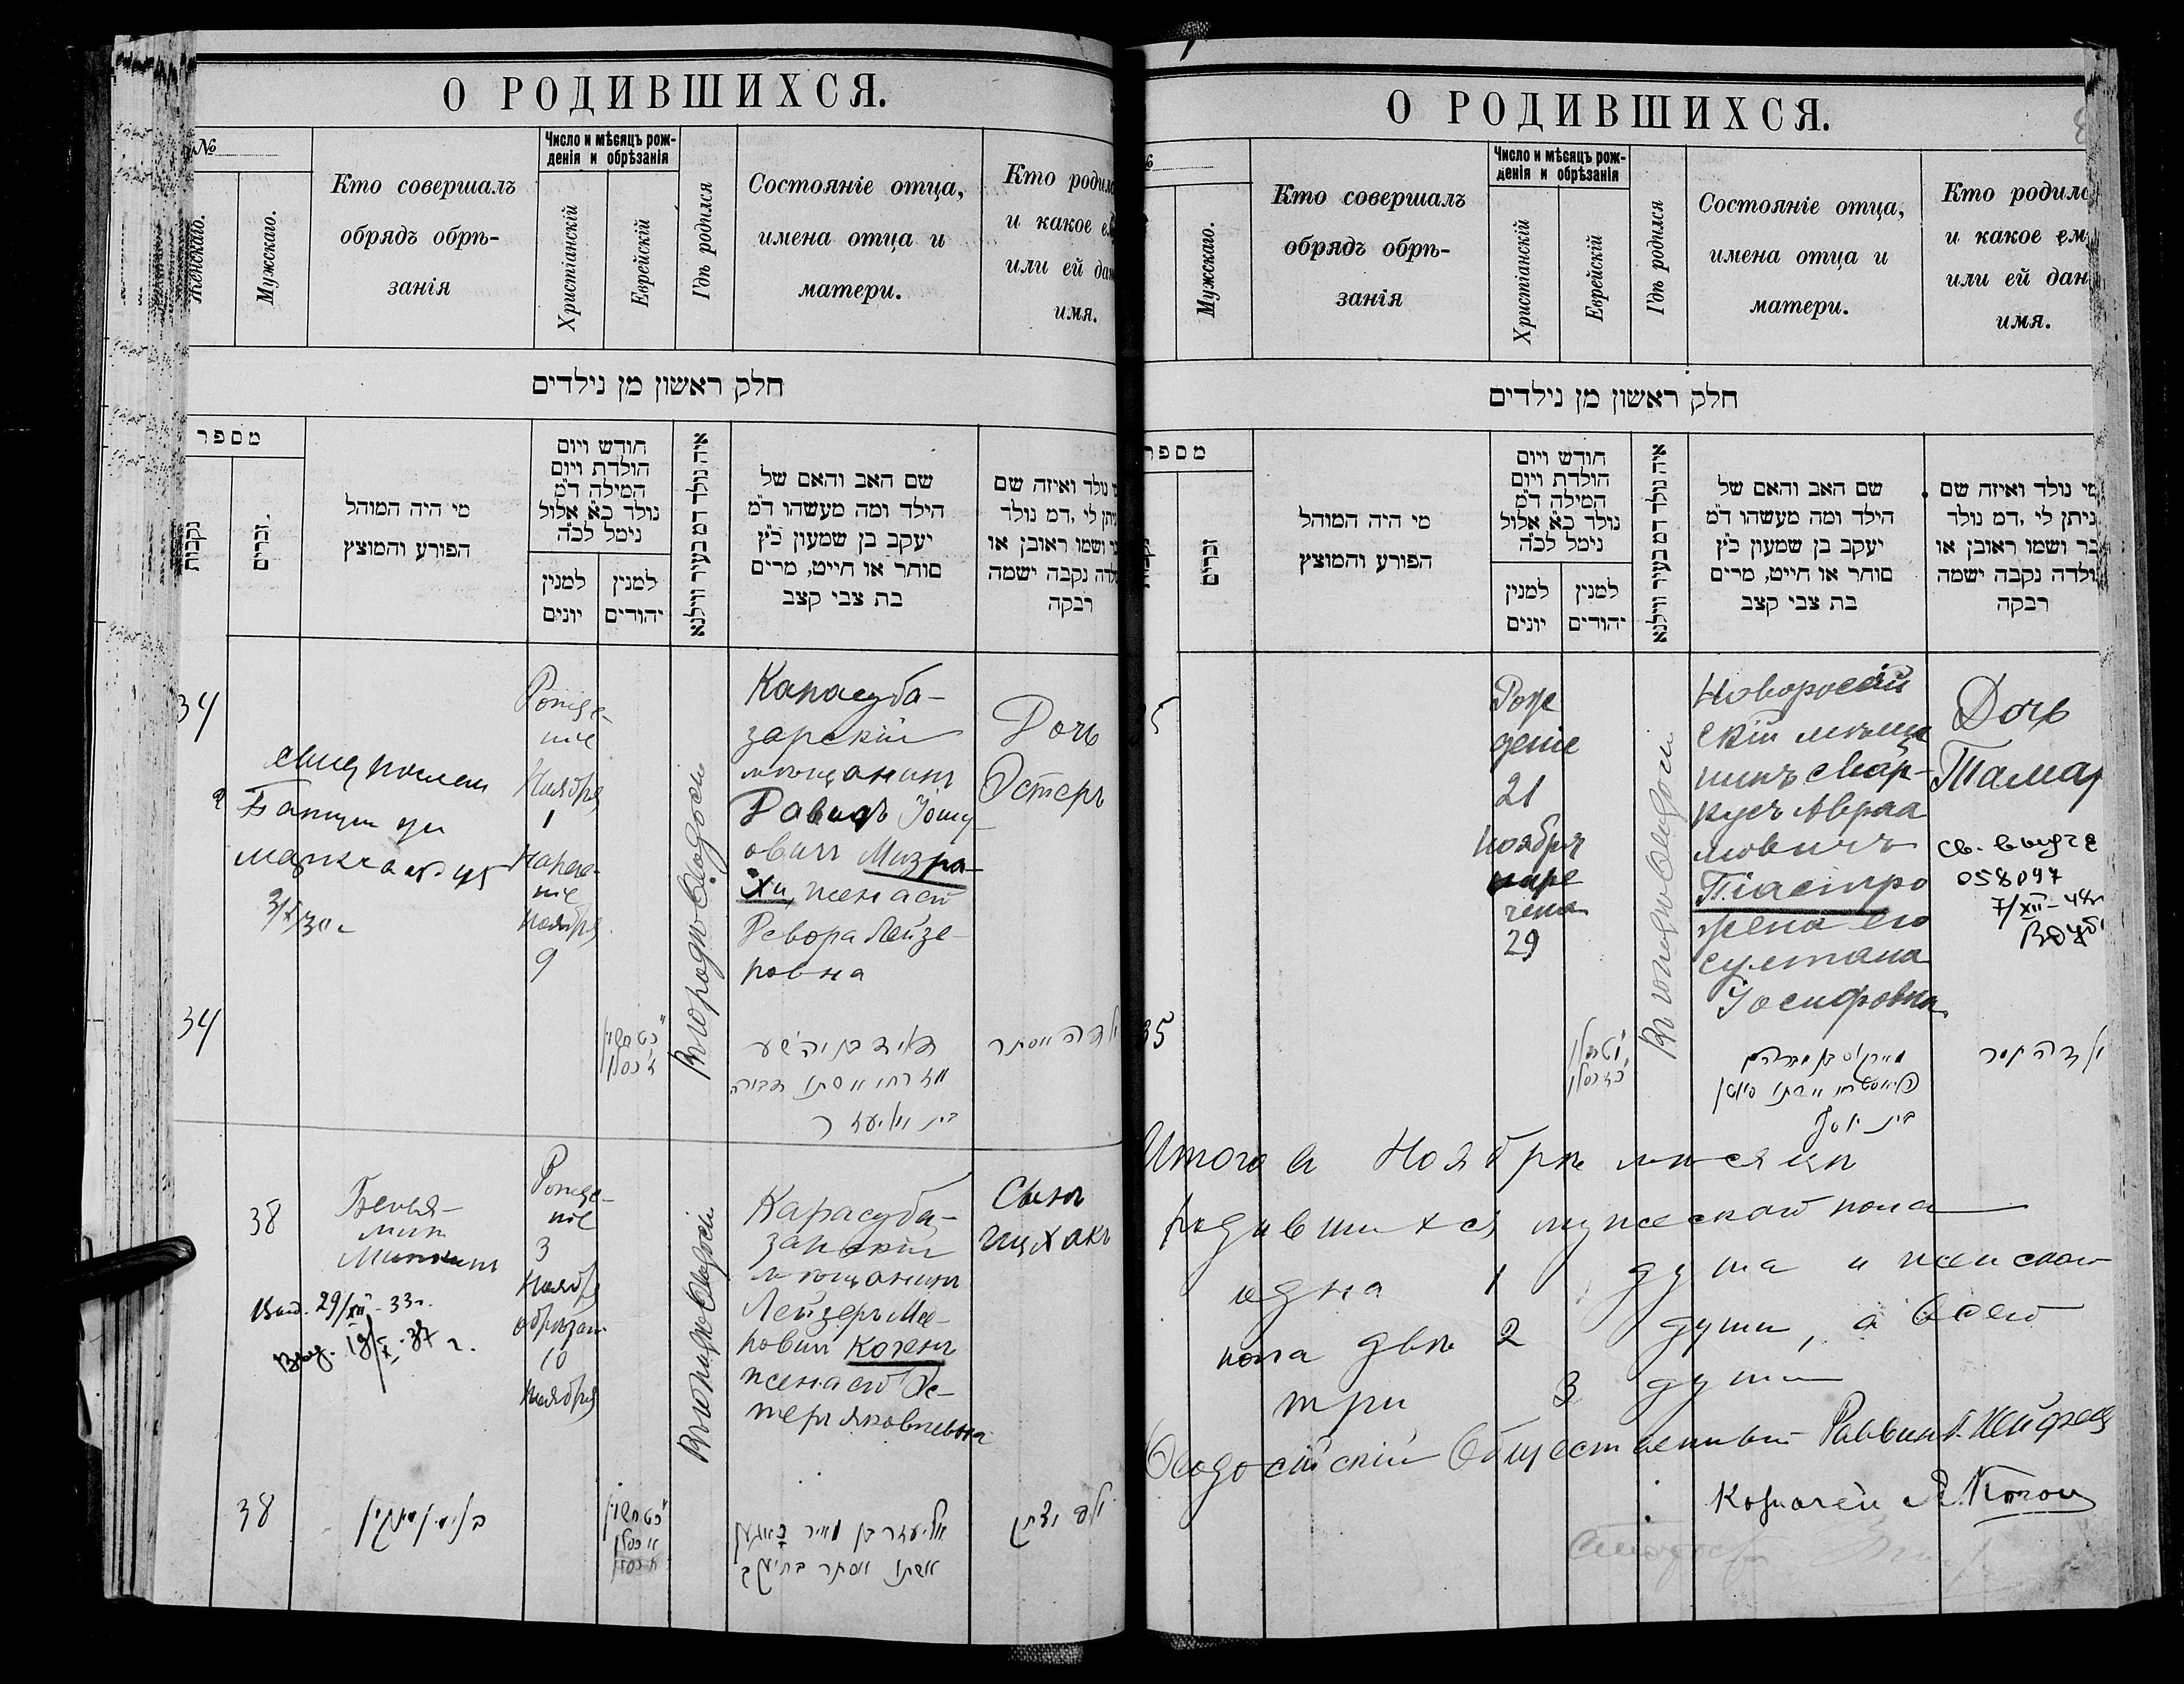 О РОДИВШИХСЯ.
№
Женскаго.
Мужскаго.
Кто совершалъ
обрядъ обрѣ-
занія
Число и мѣсяцъ рож-
денія и обрѣзанія
Христіанскій
Еврейскій
Гдѣ родился
Состояніе отца,
имена отца и
матери.
Кто родил
и какое е
или ей дан
имя.
חלק ראשון מן נילדים
מספר
נקבות
זכרים.
מי היה המוהל
הפורע והמוצץ
חודש ויום
הולדת ויום
המילה ד״מ
נולד כ״א אלול
נימל לכ״ה
למנין
יונים
למנין
יהודים
איה נולד דמ בעיר ווילנא
שם האב והאם של
הילד ומה מעשהו ד״מ
יעקב בן שמעון כ״ץ
סוחר או חייט, מרים
בת צבי קצב
נולד ואיזה שם
ניתן לי, דמ נולד
ושמו ראובן או
נקבה ישמה
רבקה
34
Рожде-
ніе
Ноября
1
Нарече-
ніе
Ноября
9
Въ городѣ Ѳеодосіи
Карасуба-
зарскій
мѣщанинъ
Давидъ Іошу
овичъ Мизра-
хи, жена его
Девора Лейзе-
ровна
Дочь
Эстеръ
34
38
Бенья-
минъ
Минкинъ
Выд. 29/XII-33г.
Выд. 19/X-37 г.
Рожде-
ніе
3
Ноября
обрѣзан
10
Ноября
Въ городѣ Ѳеодосіи
Карасуба-
зарскій
мѣщанинъ
Лейзеръ Ме-
ровичъ Когенъ
жена его Эс-
теръ Яковлевна
Сынъ
Ицхакъ
38
בנימין מינקין
אליעזר בן מאיר כאגען
אשתו אסתר בת יעקב
ילד יצחק
О РОДИВШИХСЯ.
Мужскаго.
Кто совершалъ
обрядъ обрѣ-
занія
Число и мѣсяцъ рож-
денія и обрѣзанія
Христіанскій
Еврейскій
Гдѣ родился
Состояніе отца,
имена отца и
матери.
Кто родилс
и какое ем
или ей дан
имя.
חלק ראשון מן נילדים
מספר
זכרים
מי היה המוהל
הפורע והמוצץ
חודש ויום
הולדת ויום
המילה ד״מ
נולד כ״א אלול
נימל לכ״ה
למנין
יונים
למנין
יהודים
איה נולד דמ בעיר ווילנא
שם האב והאם של
הילד ומה מעשהו ד״מ
יעקב בן שמעון כ״ץ
סוחר או חייט, מרים
בת צבי קצב
מי נולד ואיזה שם
ניתן לי, דמ נולד
ושמו ראובן או
נקבה ישמה
רבקה
5
Рож
деніе
21
Ноября
наре
чена
29
Въ городѣ Ѳеодосіи
Новоросій
скій мѣща
нинъ Мар-
кусъ Авраа
мовичъ
Піастро
жена его
Султана
Іосифовна
Дочь
Тамар
Св. выдре
058097
7/XII-48г
35
Итого въ Ноябрѣ мѣсяцѣ
родившихся мужескаго пола
одна 1 душа и женскаго
пола двѣ 2 души, а всего
три 3 души
Ѳеодосійскій Общественный Раввинъ
Казначей